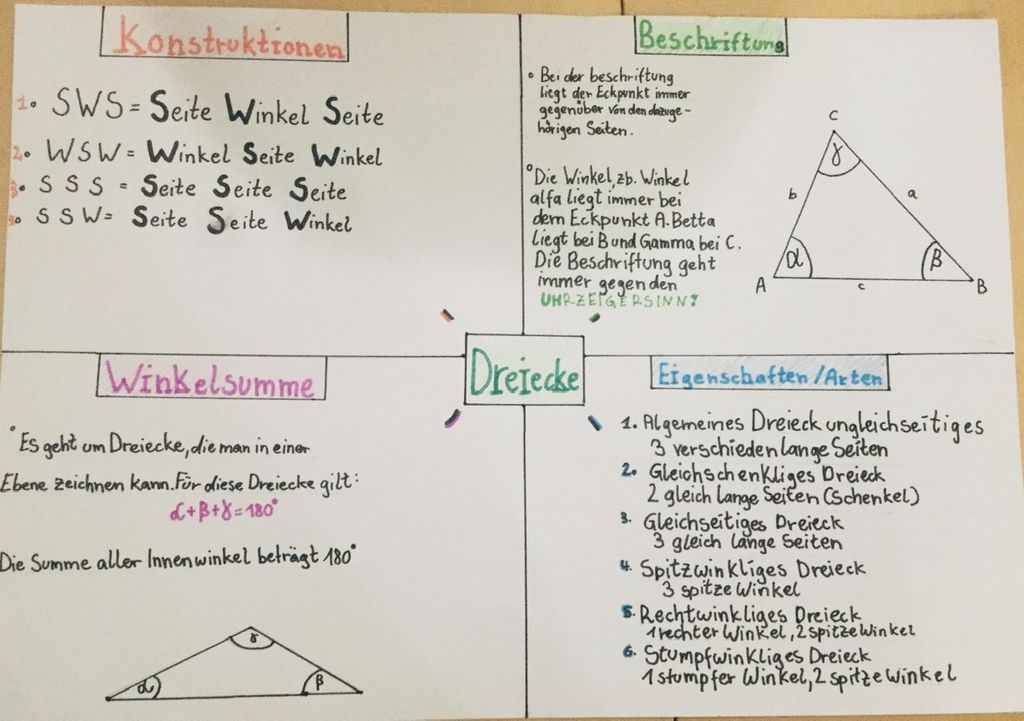 Konstruktionen
1. SWS = Seite Winkel Seite
2. WSW = Winkel Seite Winkel
3. SSS = Seite Seite Seite
4. SSW = Seite Seite Winkel
Beschriftung
• Bei der beschriftung
liegt der Eckpunkt immer
gegenüber von den dazuge-
hörigen Seiten.
• Die Winkel, zb. Winkel
alfa liegt immer bei
dem Eckpunkt A. Betta
liegt bei B und Gamma bei C.
Die Beschriftung geht
immer gegen den
UHRZEIGERSINN!
C
γ
b
a
α
β
A
c
B
Dreiecke
Winkelsumme
• Es geht um Dreiecke, die man in einer
Ebene zeichnen kann. Für diese Dreiecke gilt:
α+β+γ=180°
Die Summe aller Innenwinkel beträgt 180°
γ
α
β
Eigenschaften/Arten
1. Algemeines Dreieck ungleichseitiges
3 verschieden lange Seiten
2. Gleichschenkliges Dreieck
2 gleich lange Seiten (Schenkel)
3. Gleichseitiges Dreieck
3 gleich lange Seiten
4. Spitzwinkliges Dreieck
3 spitze Winkel
5. Rechtwinkliges Dreieck
1 rechter Winkel, 2 spitze Winkel
6. Stumpfwinkliges Dreieck
1 stumpfer Winkel, 2 spitze Winkel